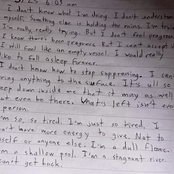 I don't know what I'm doing. I don't understand
myself. Something else is holding the reins. I'm trying
I'm really, really trying. But I don't feel progress
I know there's been progress. But I can't accept
I still feel like an empty vessel. I would really
like to fall asleep forever.
I don't know how to stop suppressing. I can't
bring anything to the surface. It's all so
deep down inside me that it may as well
not even be there. What's left isn't even
a person.
I'm so, so tired. I'm just so tired. I
don't have more energy to give. Not to
myself or anyone else. I'm a dull flame.
I'm a shallow pool. I'm a stagnant river.
can't get back